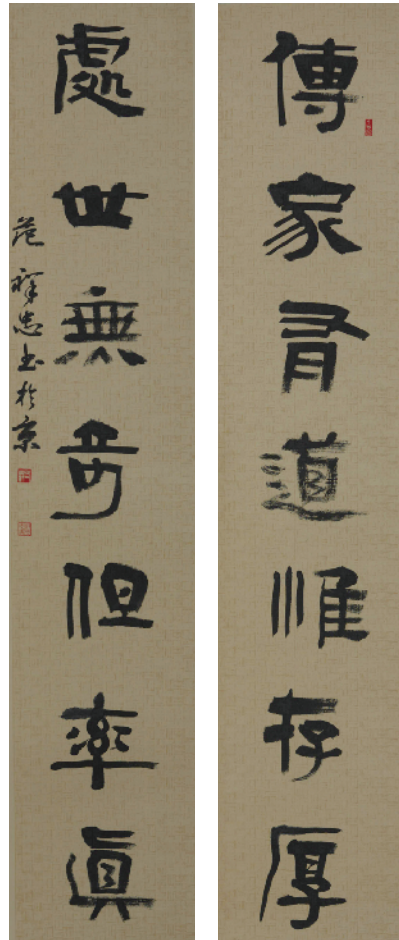 傳家有道惟存厚
處世無奇但率真
范禪忠书於京